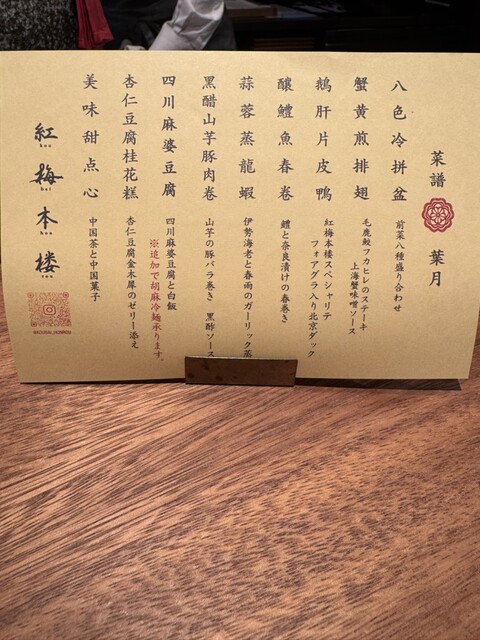 菜譜 葉月
八色冷拼盆
前菜八種盛り合わせ
蟹黄煎排翅
毛鹿鮫フカヒレのステーキ
上海蟹味噌ソース
鵝肝片皮鴨
紅梅本楼スペシャリテ
フォアグラ入り北京ダック
釀鱧魚春巻
鱧と奈良漬けの春巻き
蒜蓉蒸龍蝦
伊勢海老と春雨のガーリック蒸
黒醋山芋豚肉巻
山芋の豚バラ巻き 黒酢ソース
四川麻婆豆腐
四川麻婆豆腐と白飯
※追加で胡麻冷麺承ります。
杏仁豆腐桂花糕
杏仁豆腐金木犀のゼリー添え
美味甜点心
中国茶と中国菓子
紅梅本楼